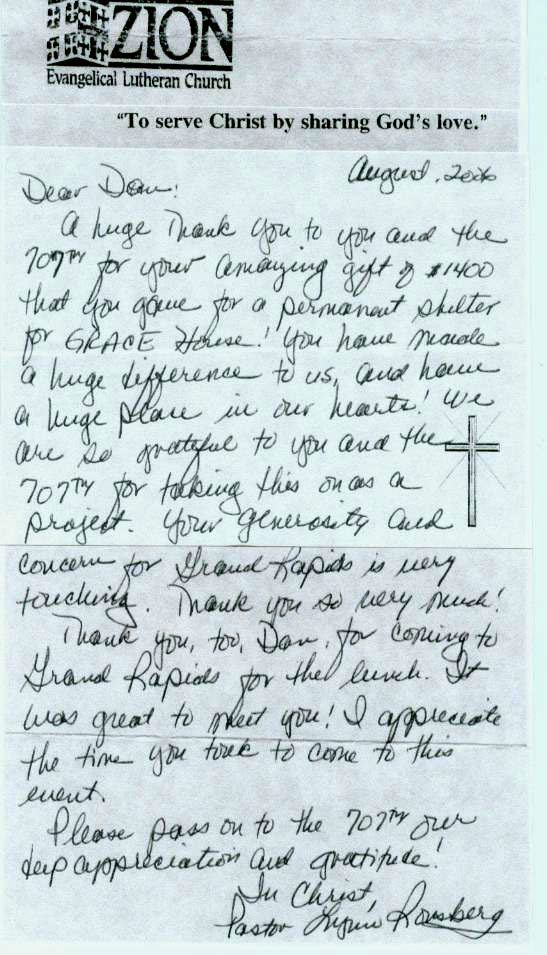 ZION
Evangelical Lutheran Church
"To serve Christ by sharing God's love."
August, 2006
Dear Don:
A huge Thank you to you and the
707TH for your amazing gift of $1400
that you gave for a permanent shelter
for GRACE House! You have made
a huge difference to us, and have
a huge place in our hearts! We
are so grateful to you and the
707TH for taking this on as a
project. Your generosity and
concern for Grand Rapids is very
touching. Thank you so very much!
Thank you, too, Don, for coming to
Grand Rapids for the lunch. It
was great to meet you! I appreciate
the time you took to come to this
event.
Please pass on to the 707TH our
deep appreciation and gratitude!
In Christ,
Pastor Lynn Ronsberg